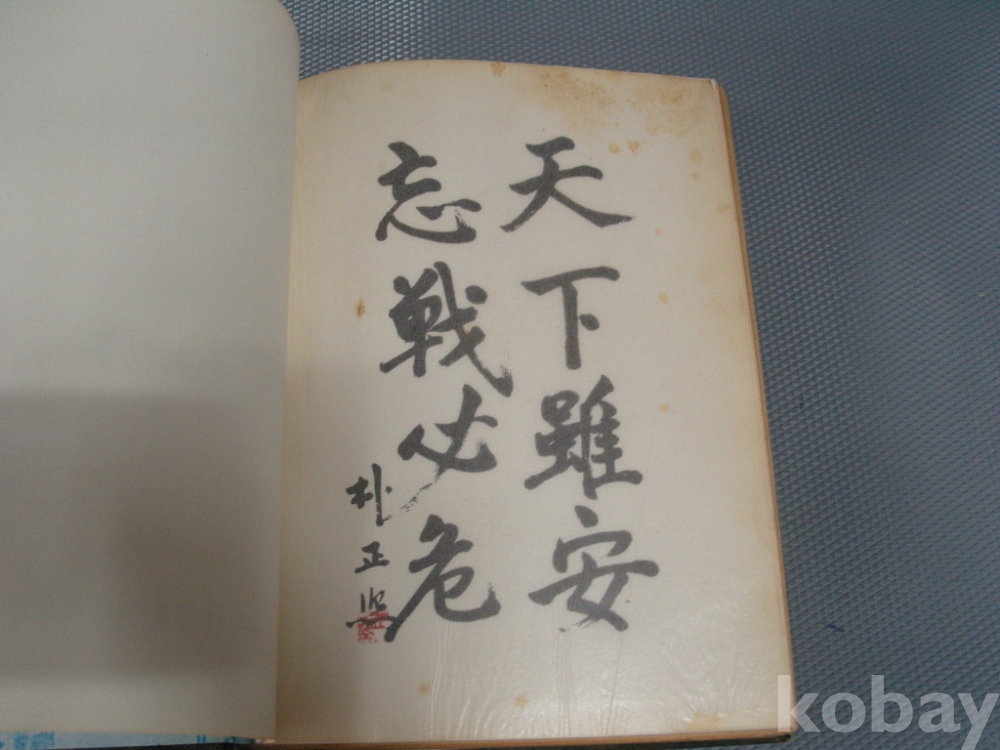 天下雖安
忘戰必危
朴正熙
kobay